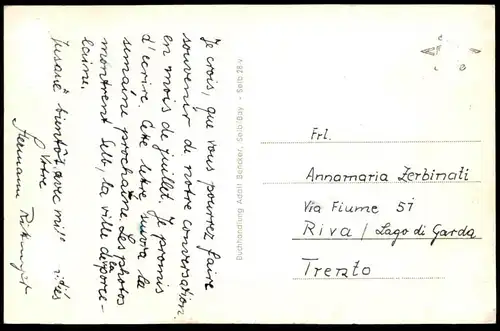 Je crois, que vous pourrez faire
souvenir de notre conversation
en mois de juillet. Je promis
d'ecrire. Cette lettre suivra la
semaine prochaine. Les photos
montrent Selb, la ville de la porce-
laine.
Jusané bientôt avec mil"
Votre
Hermann
Buchhandlung Adolf Rebober, Selb/Bay
Frl.
Annamaria Zerbinati
Via Fiume 51
Riva / Lago di Garda
Trento